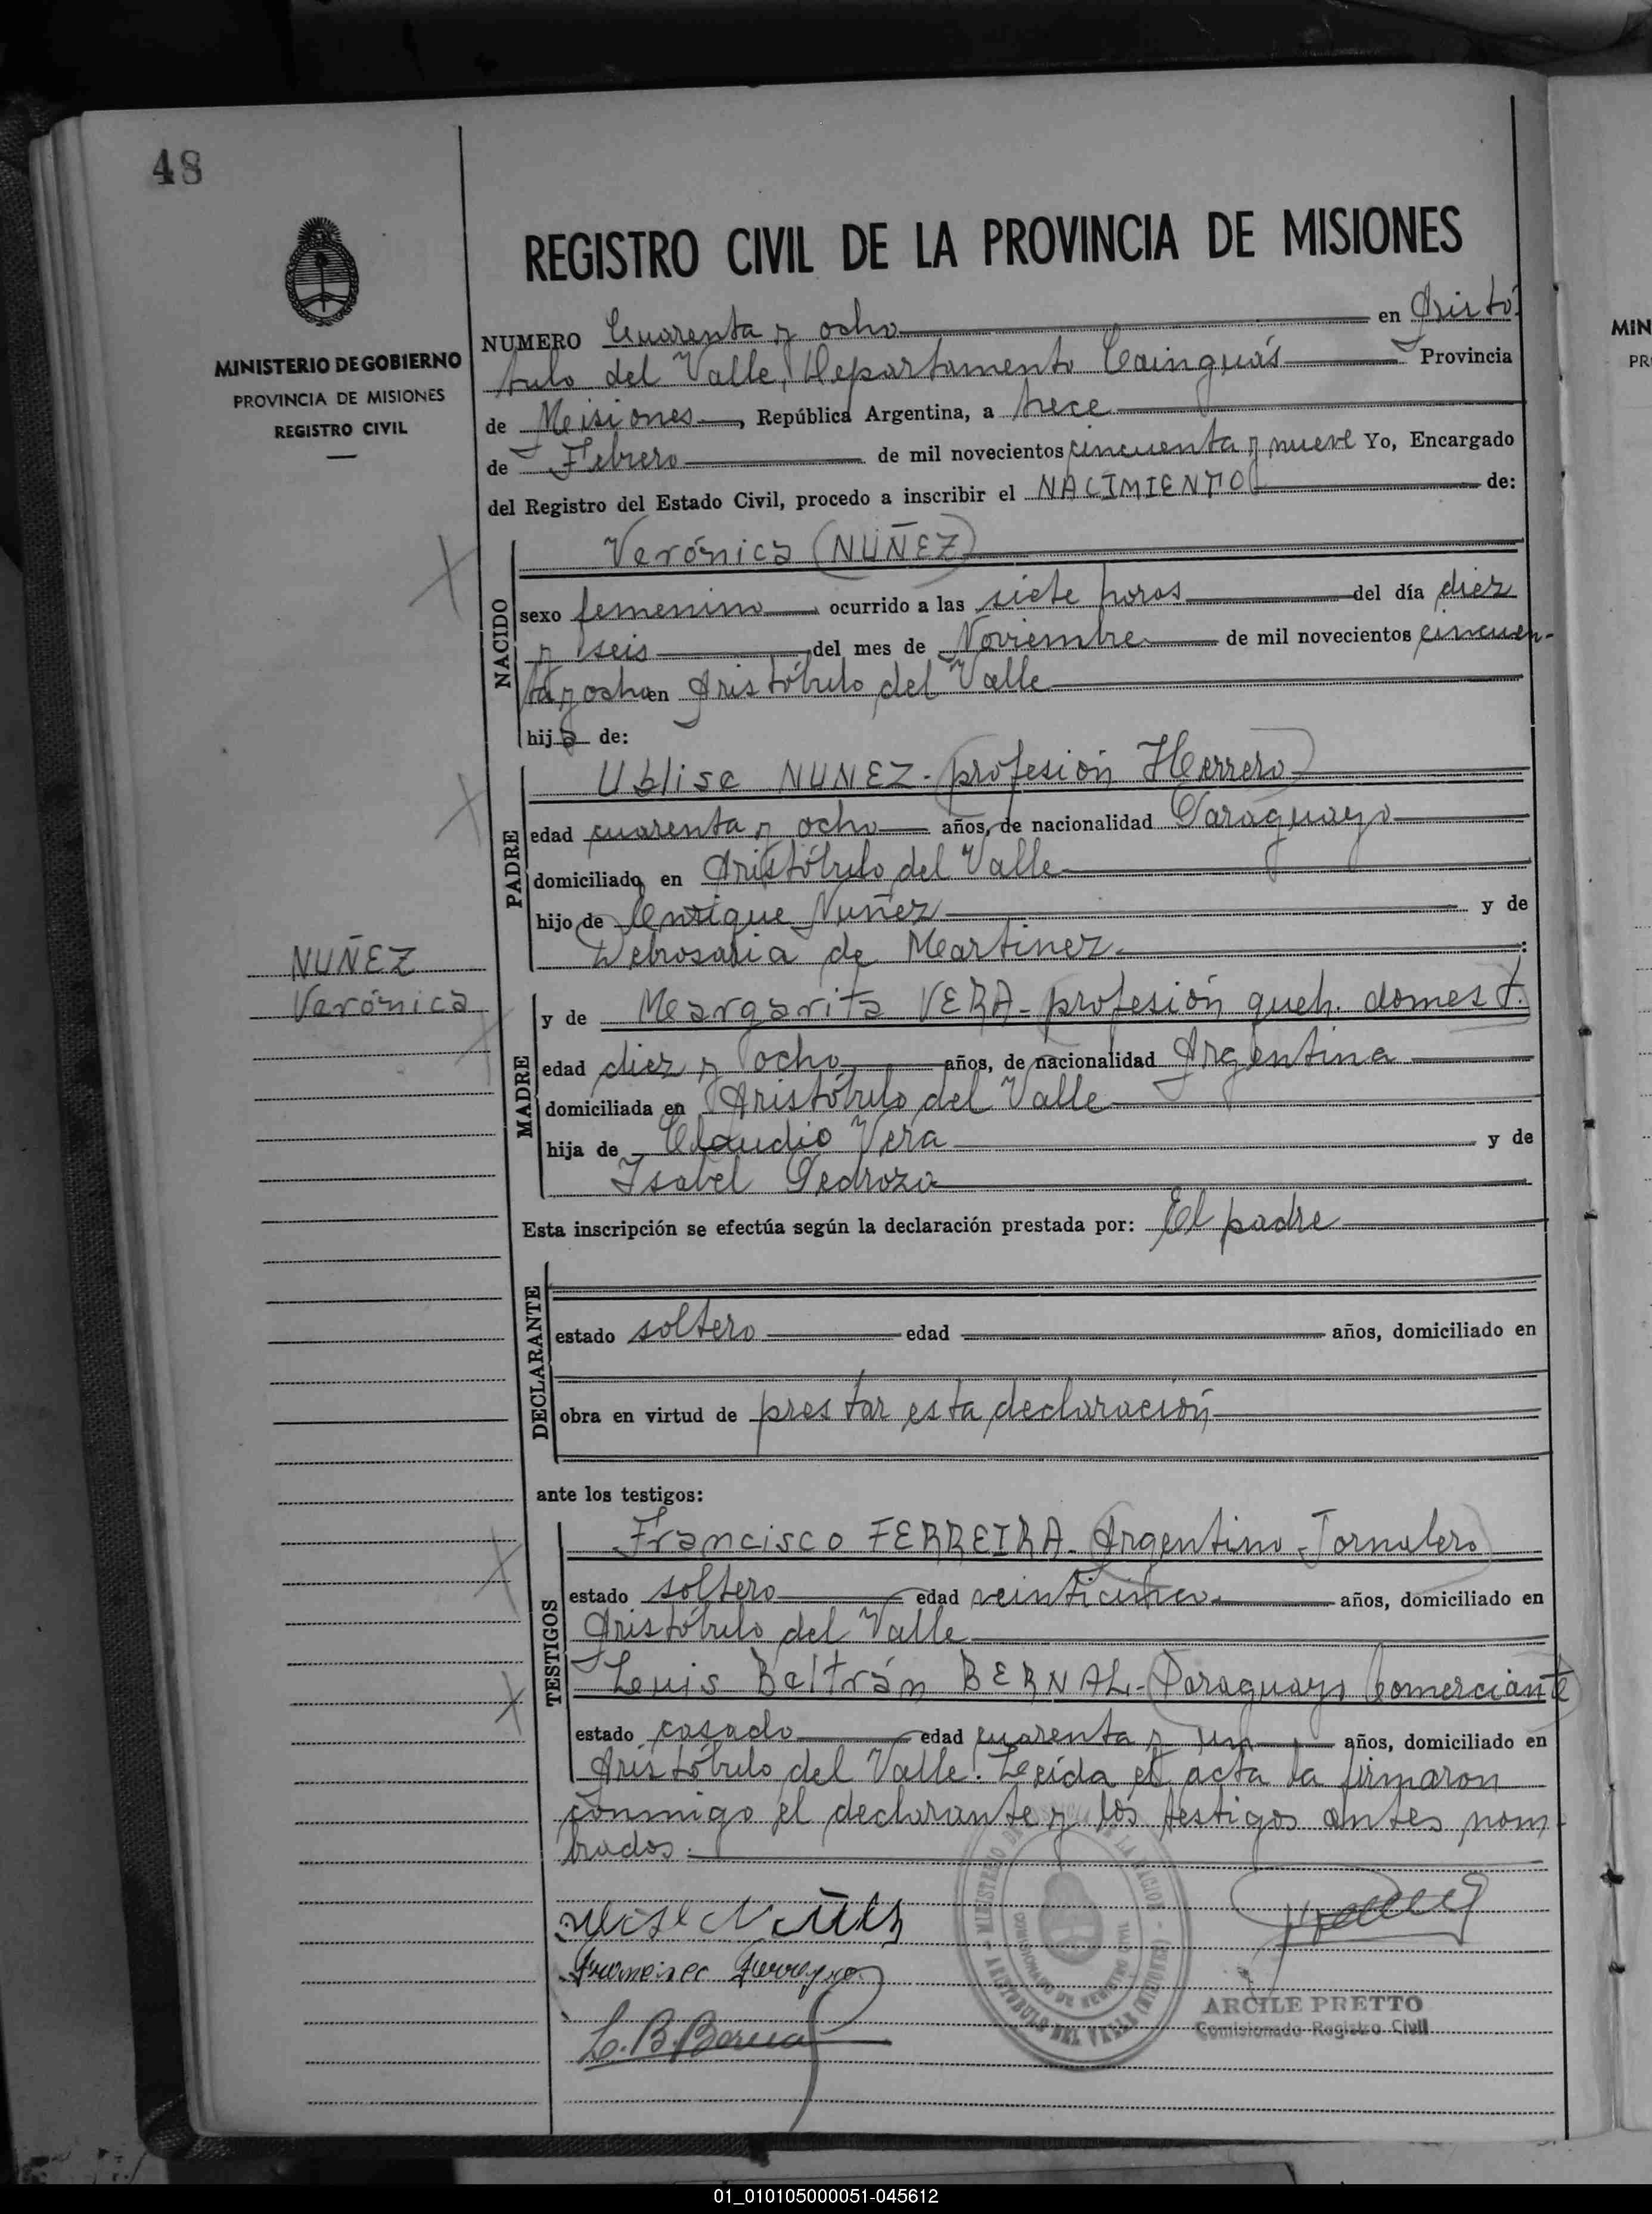 48
MINISTERIO DE GOBIERNO
PROVINCIA DE MISIONES
REGISTRO CIVIL
REGISTRO CIVIL DE LA PROVINCIA DE MISIONES
NUMERO Cuarenta y ocho en Aristó
bulo del Valle, Departamento Cainguás Provincia
de Misiones, República Argentina, a trece
de Febrero de mil novecientos cincuenta y nueve Yo, Encargado
del Registro del Estado Civil, procedo a inscribir el NACIMIENTO de:
NACIDO
Verónica (NUÑEZ)
sexo femenino ocurrido a las siete horas del día diez
y seis del mes de Noviembre de mil novecientos cincuen-
ta y ocho en Aristóbulo del Valle
hija de:
PADRE
Ublise NUNEZ - profesión Herrero
edad cuarenta y ocho años, de nacionalidad Paraguayo
domiciliado en Aristóbulo del Valle
hijo de Enrique Nuñez y de
de Martinez
NUÑEZ
Verónica
MADRE
y de Margarita VERA - profesión queh. domest.
edad diez y ocho años, de nacionalidad Argentina
domiciliada en Aristóbulo del Valle
hija de Claudio Vera y de
Isabel Pedrozo
Esta inscripción se efectúa según la declaración prestada por: El padre
DECLARANTE
estado soltero edad años, domiciliado en
obra en virtud de prestar esta declaración
ante los testigos:
TESTIGOS
Francisco FERREIRA - Argentino - Jornalero
estado soltero edad veinticinco años, domiciliado en
Aristóbulo del Valle
Luis Beltrán BERNAL - Paraguayo Comerciante
estado casado edad cuarenta y un años, domiciliado en
Aristóbulo del Valle. Leída el acta la firmaron
conmigo el declarante y los testigos antes nom
brados.
L. B. Bernal
ARISTOBULO DEL VALLE (MISIONES)
ARCILE PRETTO
Comisionado Registro Civil
01_010105000051-045612
MIN
PR